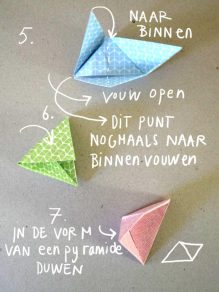 5.
NAAR
BINNEN
VOUW OPEN
DIT PUNT
NOGMAALS NAAR
BINNEN VOUWEN
6.
7.
IN DE VORM
VAN een pyramide
DUWEN